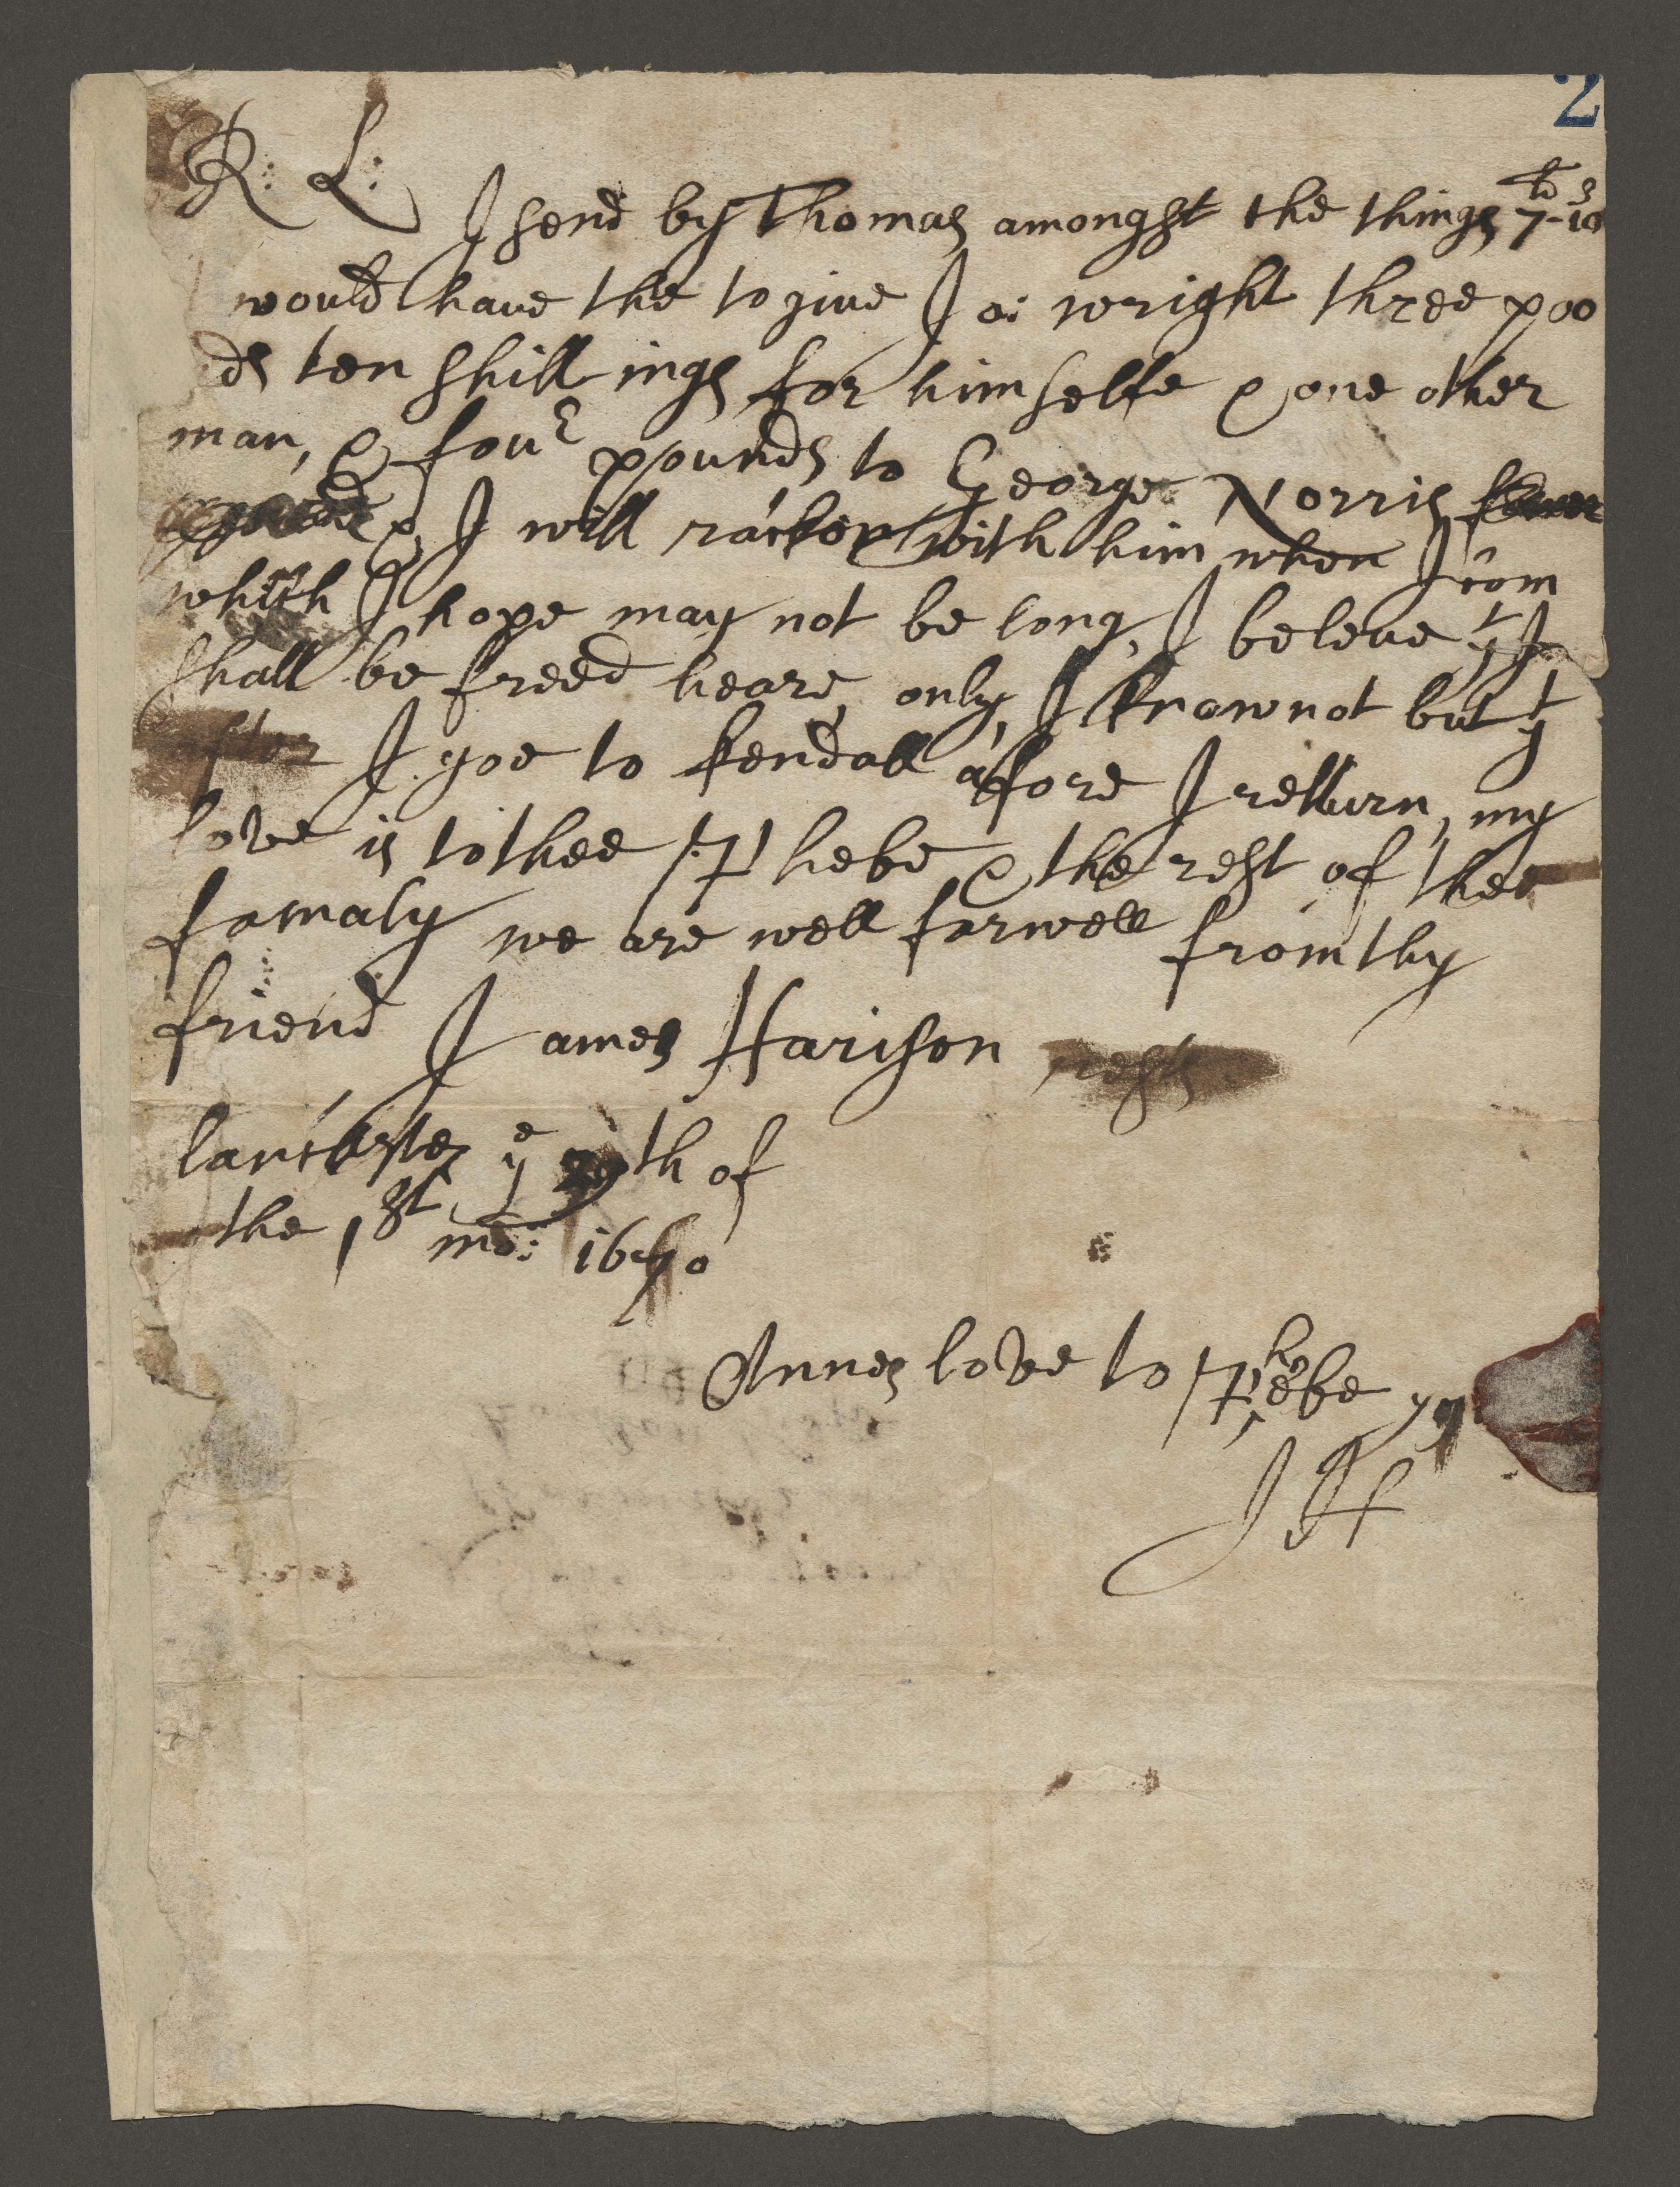 2
R: L:
I send by Thomas amongst the things 7li-10s
would have the to give Jo: wright three poo
ds ten shillings for him selfe & one other
man, & four pounds to George Norris
& I will racken with him when I com
which I hope may not be long, I beleve yt I
shall be freed heare, only, I know not but yt
after I goe to kendall afore I retturn, my
love is to thee Phebe & the rest of thee
famaly we are well farwell from thy
friend James Harison
lancaster ye 29th of
the 1st mo: 1670
Annes love to Phebe
JH